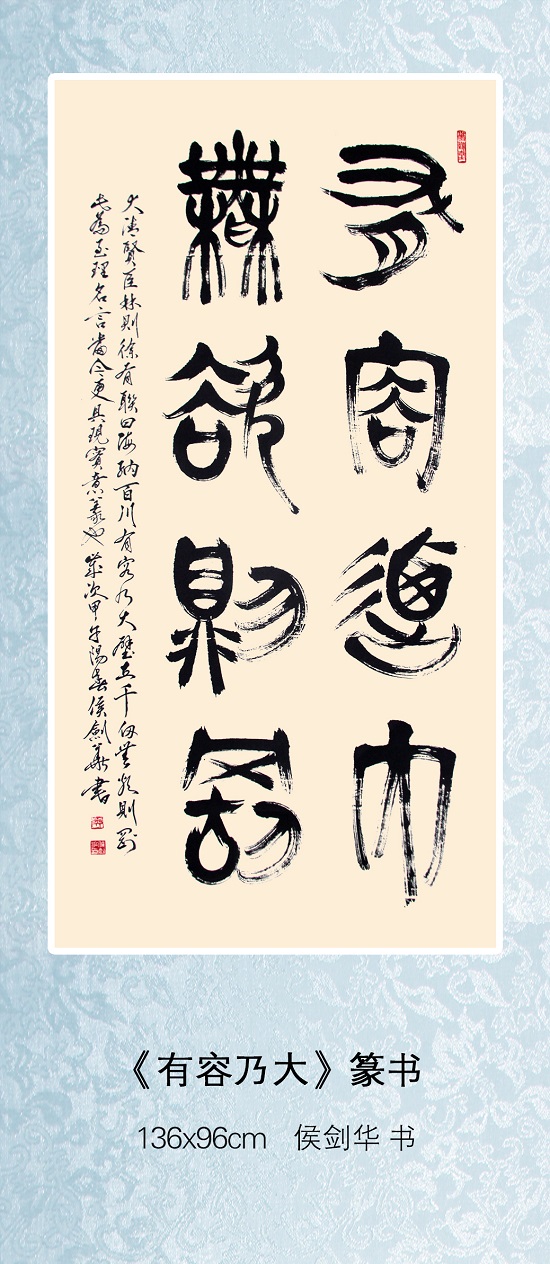 有容乃大
無欲則剛
大清賢臣林則徐有聯曰海納百川有容乃大壁立千仞無欲則剛
此為至理名言當今更具現實意義也歲次甲午陽春侯劍華書
《有容乃大》篆书
136x96cm 侯剑华 书